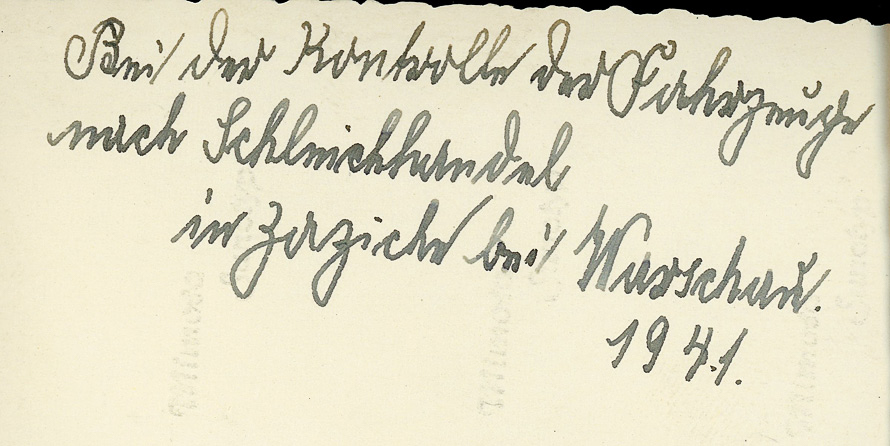 Bei der Kontrolle der Fahrzeuge
nach Schleichhandel
in Zazicke bei Warschau.
1941.